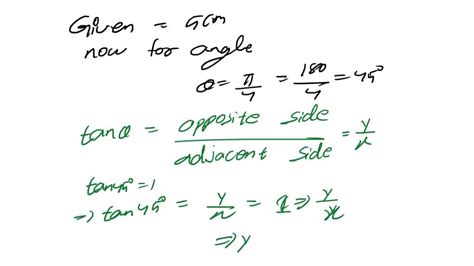 Given = 5cm
now for angle
θ = π/4 = 180/4 = 45°
tanθ = opposite side / adjacent side = y/x
tan45° = 1
⇒ tan45° = y/x = 1 ⇒ y/x
⇒ y